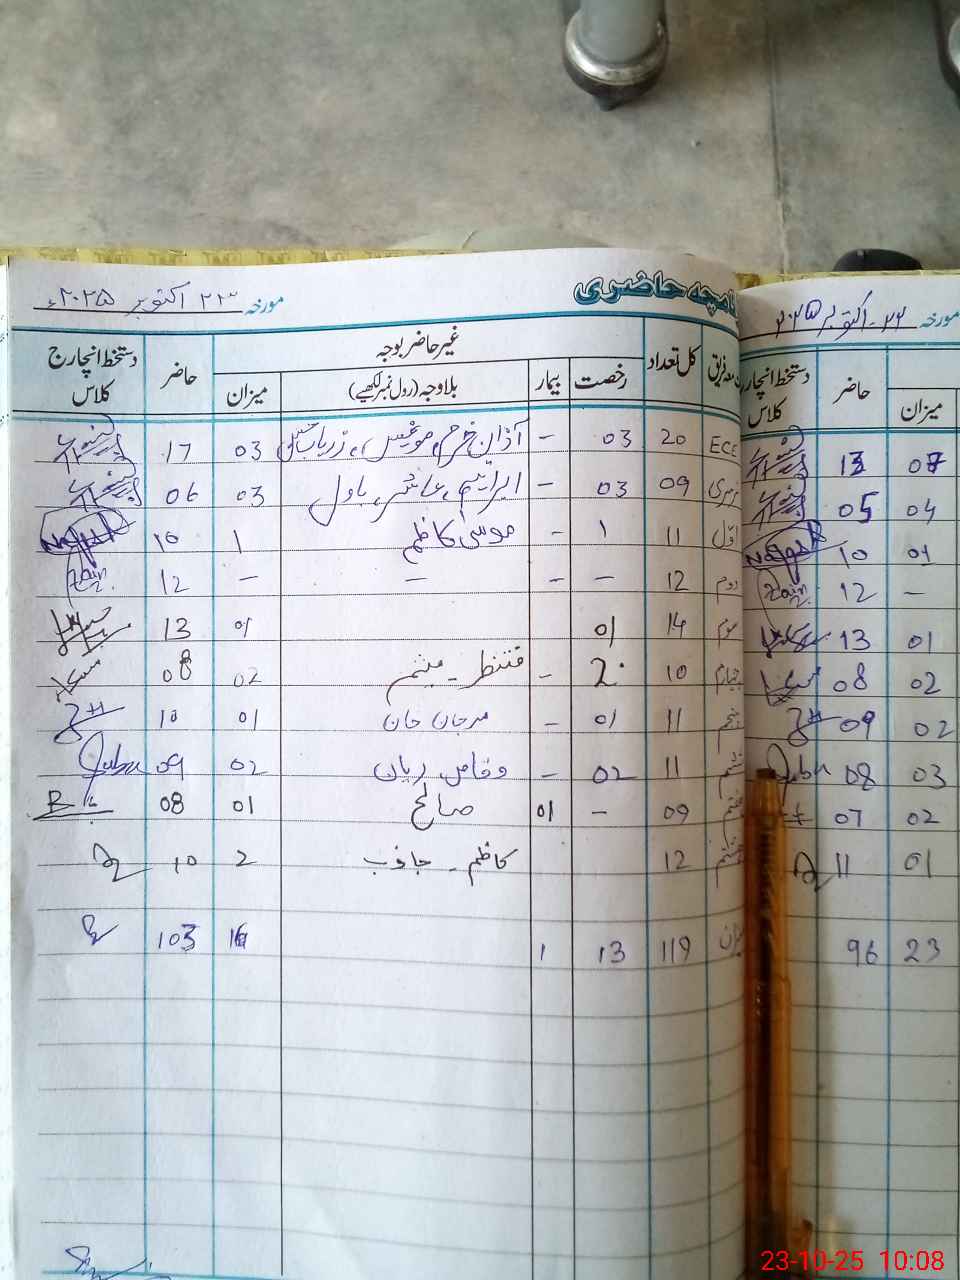 نامچہ حاضری
مورخہ ۲۳ اکتوبر ۲۰۲۵ء
کل تعداد غیر حاضر بوجہ حاضر دستخط انچارج کلاس
رخصت بیمار بلاوجہ (رول نمبر لکھیے) میزان
ECE 20 03 - آذان خرم، ، زریاب 03 17
نرسری 09 03 - ابراہیم، عاشر، باول 03 06
اوّل 11 1 - موسیٰ کاظم 1 10
دوم 12 - - - - 12
سوم 14 01 01 13
چہارم 10 2 - منتظر - میثم 02 08
پنجم 11 01 - مرجان خان 01 10
ششم 11 02 - وقاص ریان 02 09
ہفتم 09 - 01 صالح 01 08
ہشتم 12 کاظم - جاذب 2 10
میزان 119 13 1 16 103
مورخہ ۲۲ - اکتوبر ۲۰۲۵
میزان حاضر دستخط انچارج کلاس
07 13
04 05
01 10
- 12
01 13
02 08
02 09
03 08
02 07
01 11
23 96
23-10-25 10:08